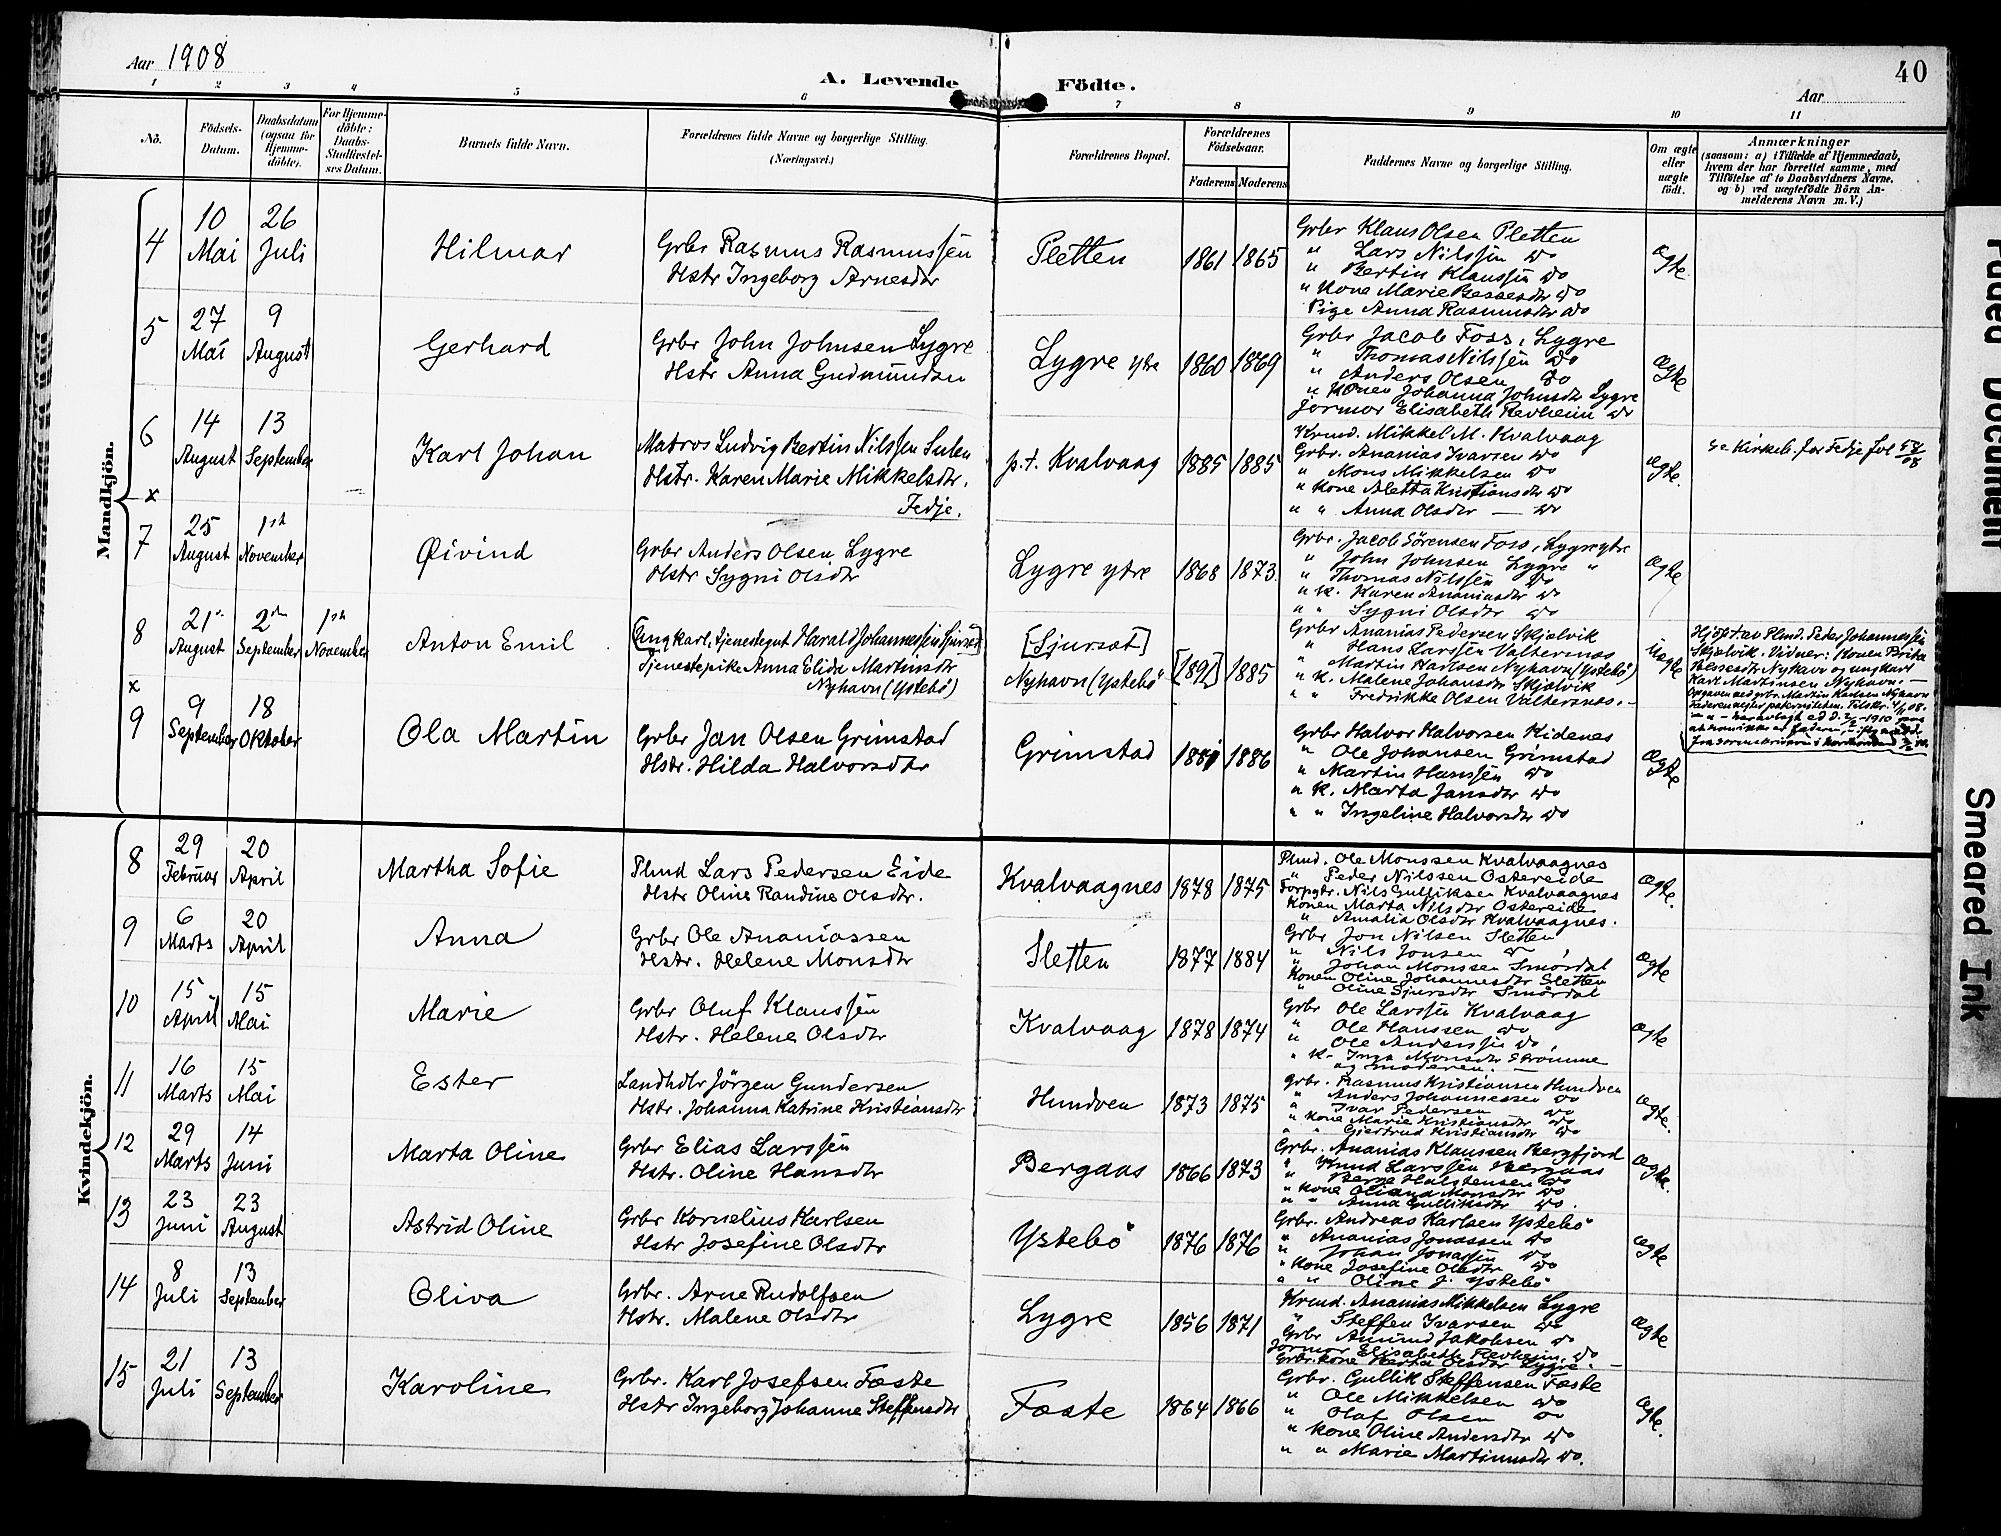 Aar 1908
A. Levende Födte.
40
Aar
1 2 3 4 5 6 7 8 9 10 11
No.
Födsels-Datum.
Daabsdatum (ogsaa för Hjemme-döbte).
For Hjemme-döbte: Daabs-Stadfæstel-ses Datum.
Barnets fulde Navn.
Forældrenes fulde Navne og borgerlige Stilling. (Næringsvei.)
Forældrenes Bopæl.
Forældrenes Födselsaar.
Faderens Moderens
Faddernes Navne og borgerlige Stilling.
Om ægte eller uægte födt.
Anmærkninger
(saasom: a) i Tilfælde af Hjemmedaab,
hvem der har forrettet samme, med
Tilföielse af to Daabsvidners Navne.
og b) ved uægtefödte Börn An-
melderens Navn m. V.)
Mandkjön.
4 10 Mai 26 Juli Hilmar
Grbr Rasmus Rasmussen
Hstr Ingeborg Arnesdtr
Sletten 1861 1865
Grbr Klaus Olsen Sletten
" Lars Nilssen do
" Bertin Klaussen do
" Kone Marie Bessesdtr do
Pige Anna Rasmusdtr do
ægte
5 27 Mai 9 August Gerhard
Grbr John Johnsen Lygre
Hstr Anna Gudmundsen
Lygre ytre 1860 1869
Grbr Jacob Foss, Lygre
" Thomas Nilssen do
" Anders Olsen do
" Konen Johanna Johnsdtr Lygre
Jormor Elisabeth Revheim do
ægte
6 14 August 13 September Karl Johan
Matros Ludvig Bertin Nilssen Sulen
Hstr. Karen Marie Mikkelsdtr.
Fedje.
p.t. Kvalvaag 1885 1885
Krmd. Mikkel M. Kvalvaag
Grbr. Ananias Ivarsen do
" Mons Mikkelsen do
" Kone Aletta Kristiansdtr do
" " Anna Olsdtr — do
ægte.
se Kirkeb. for Fedje fol
x
7 25 August 1ste November Øivind
Grbr Anders Olsen Lygre
Hstr Sygni Olsdtr
Lygre ytre 1868 1873.
Grbr. Jacob Sörensen Foss, Lygre ytre
" John Johnsen Lygre "
" Thomas Nilssen do
" K. Karen Ananiasdtr do
" " Sygni Olsdtr do
ægte
8 21 August 2den September 1ste November Anton Emil
[Ungkarl, tjenestegut Harald Johannessen Sjurset]
Tjenestepike Anna Elida Martinsdtr
Nyhavn (Ystebö)
[Sjurset]
Nyhavn (Ystebö [1891] 1885
Grbr Ananias Pedersen Skjelvik
" Hans Larssen Valtersnes
" Martin Karlsen Nyhavn (Ystebö)
" K. Malene Johansdtr Skjelvik
" " Fredrikke Olsen Valtersnes. —
uægte
Hjdöpt av Plmd. Peder Johannessen
Skjelvik. Vidner: Konen Brita
Bessesdtr Nyhavn og ungkarl
Karl Martinsen Nyhavn. —
Opgaven ved grbr. Martin Karlsen Nyhavn
x
9 9 September 18 Oktober Ola Martin
Grbr Jan Olsen Grimstad
Hstr. Hilda Halvorsdtr
Grimstad 1881 1886
Grbr Halvor Halvorsen Kidenes
" Ole Johansen Grimstad
" Martin Hanssen do
" K. Marta Jansdtr do
" " Ingeline Halvorsdtr do
ægte
Kvindekjön.
8 29 Februar 20 April Martha Sofie
Plmd Lars Pedersen Eide
Hstr Oline Randine Olsdtr.
Kvalvaagnes 1878 1875
Plmd. Ole Monssen Kvalvaagnes
" Peder Nilssen Ostereide
Forpgtr. Nils Gulliksen Kvalvaagnes
Konen Marta Nilsdtr Ostereide
" Amalia Olsdtr Kvalvaagnes.
ægte.
9 6 Marts 20 April Anna
Grbr Ole Ananiassen
Hstr. Helene Monsdtr
Sletten 1877 1884
Grbr Jon Nilsen Sletten
" Nils Jonsen do
" Johan Monssen Smørdal
Konen Oline Johannesdtr Sletten
" Oline Sjursdtr Smørdal
ægte
10 15 April 15 Mai Marie
Grbr Oluf Klaussen
Hstr. Helene Olsdtr
Kvalvaag 1878 1874
Grbr Ole Larssen Kvalvaag
" Ole Hanssen do
" Ole Anderssen do.
" K. Inga Monsdtr Strömme
og moderen. —
ægte
11 16 Marts 15 Mai Ester
Landholr Jörgen Gundersen
Hstr. Johanna Katrine Kristiansdtr
Hundven 1873 1875
Grbr. Rasmus Kristiansen Hundven
" Anders Johannessen do
" Ivar Pedersen do
" Kone Marie Kristiansdtr do
" " Gjertrud Kristiansdtr do
ægte.
12 29 Marts 14 Juni Marta Oline
Grbr Elias Larssen
Hstr. Oline Hansdtr
Bergaas 1866 1873
Grbr. Ananias Klaussen Bergfjord
" Knud Larssen Bergaas
" Berge Halstensen do
" Kone Oliana Monsdtr do
" " Anna Gulliksdtr do.
ægte.
13 23 Juni 23 August Astrid Oline
Grbr Kornelius Karlsen
Hstr Josefine Olsdtr
Ystebö 1876 1876
Grbr. Andreas Karlsen Ystebö
" Ananias Jonassen do
" Johan Jonassen do
" Kone Josefine Olsdtr do
" " Oline J. Ystebö
ægte
14 8 Juli 13 September Oliva
Grbr. Arne Rudolfsen
Hstr. Malene Olsdtr
Lygre 1856 1871
Krmd. Ananias Mikkelsen Lygre
" Steffen Ivarsen do
Grbr Amund Jakobsen do
Jormor Elisabeth Revheim. do
Grbr. kone Berta Olsdtr Lygre. —
ægte
15 21 Juli 13 September Karoline
Grbr. Karl Josefsen Fæste
Hstr Ingeborg Johanne Steffensdtr
Fæste 1864 1866
Grbr. Gullik Steffensen Fæste
" Ole Mikkelsen do
" Olaf Olsen do
" kone Oline Andersdtr do
" " Marie Martinusdtr do.
ægte.
Faded Document
Smeared Ink